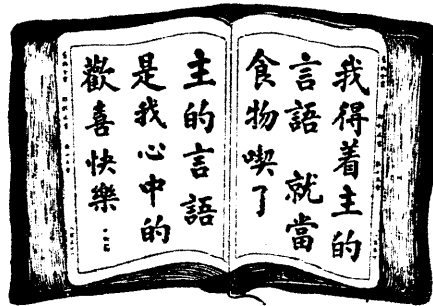 我得着主的
言語 就當
食物喫了
主的言語
是我心中的
歡喜快樂…